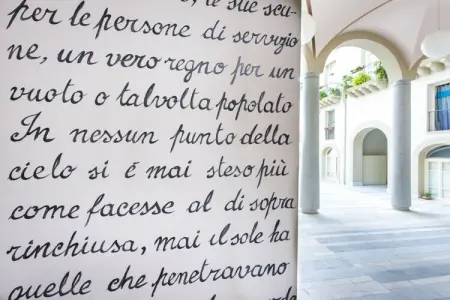 , le sue scu-
per le persone di servizio
ne, un vero regno per un
vuoto o talvolta popolato
In nessun punto della
cielo si é mai steso più
come facesse al di sopra
rinchiusa, mai il sole ha
quelle che penetravano